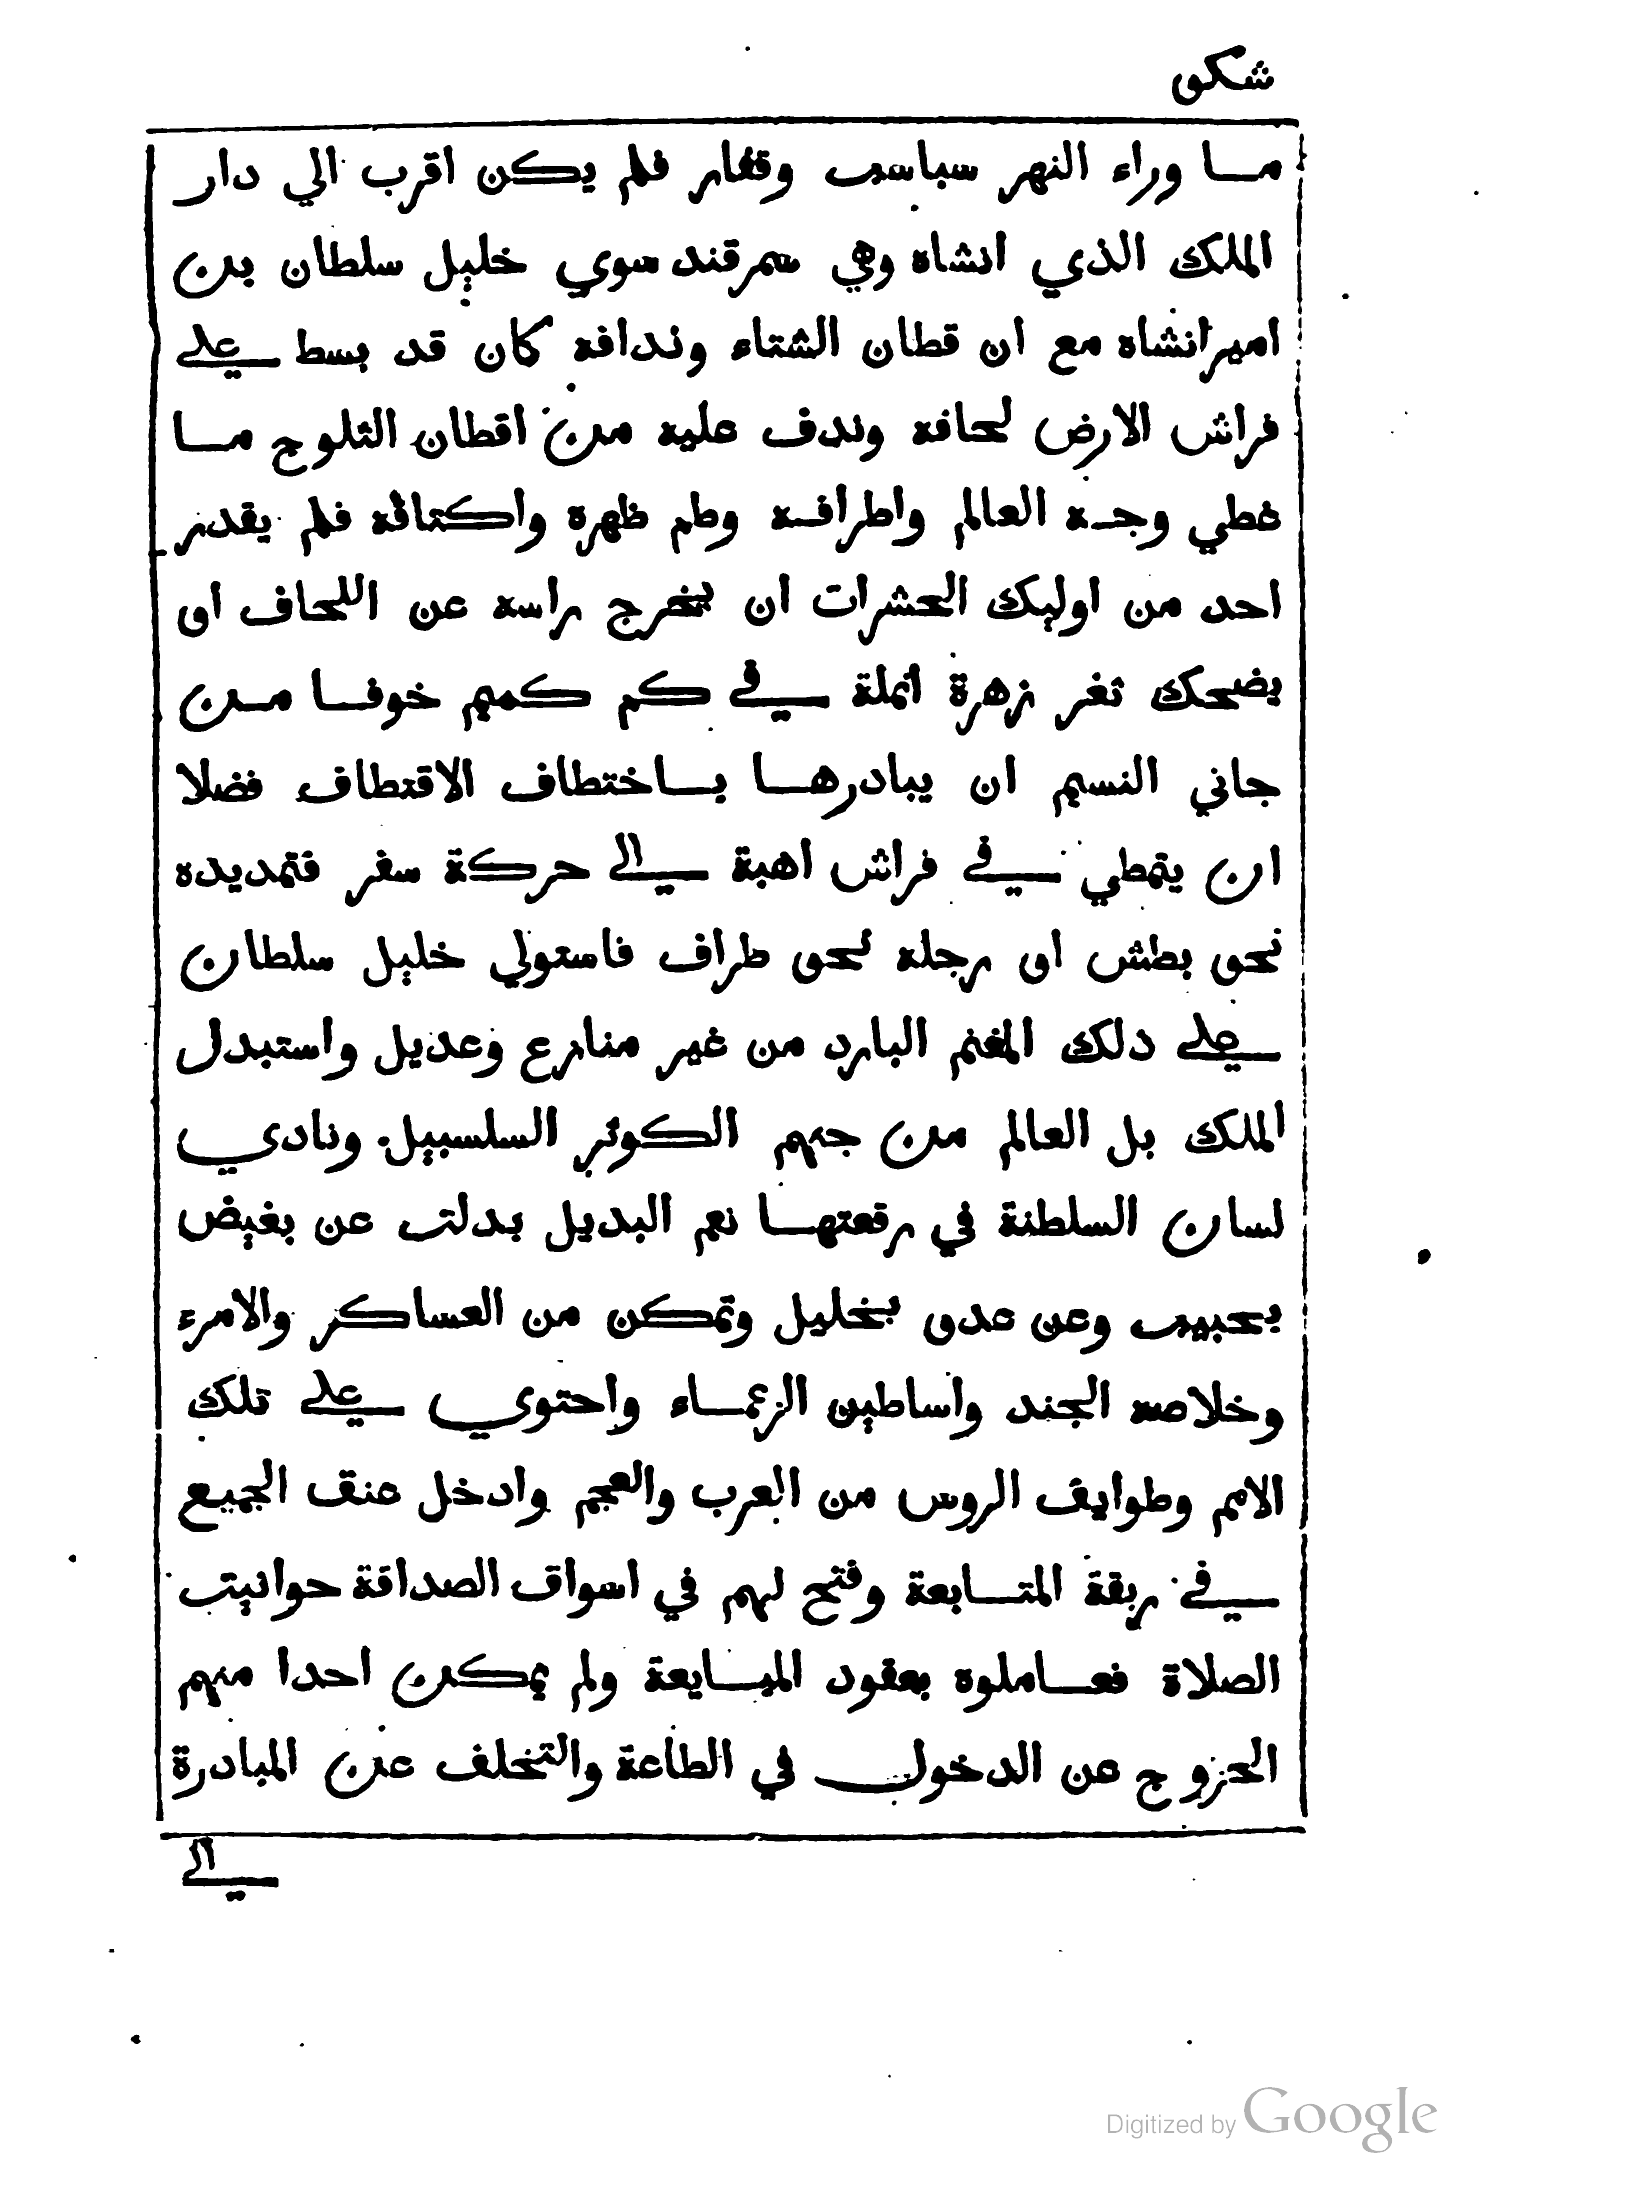 شكو
ما وراء النهر سباسب وقفار فلم يكن اقرب الي دار
الملك الذي انشاه وهي سمرقند سوي خليل سلطان بن
اميرانشاه مع ان قطان الشتاء وندافه كان قد بسط علي
فراش الارض لحافه وندف عليه من اقطان الثلوج ما
غطي وجه العالم واطرافه وطم ظهرة واكتافه فلم يقدر
احد من اوليك الحشرات ان يخرج راسه عن اللحاف او
يضحك ثغر زهرة انملة في كم كميم خوفا من
جاني النسيم ان يبادرها باختطاف الاقتطاف فضلا
ان يتمطي في فراش اهبة الي حركة سفر فتمديده
نحو بطش او رجله نحو طراف فاستولي خليل سلطان
علي دلك المغنم البارد من غير منازع وعديل واستبدل
الملك بل العالم من جهنم الكوثر السلسبيل ونادي
لسان السلطنة في رقعتها نعم البديل بدلت عن بغيض
بحبيب وعن عدو بخليل وتمكن من العساكر والامرء
وخلاصه الجند واساطين الزعماء واحتوي علي تلك
الامم وطوايف الروس من العرب والعجم وادخل عنق الجميع
في ربقة المتابعة وفتح لهم في اسواق الصداقة حوانيت
الصلاة فعاملوه بعقود المبايعة ولم يمكن احدا منهم
الخزوج عن الدخول في الطاعة والتخلف عن المبادرة
الي
Digitized by Google